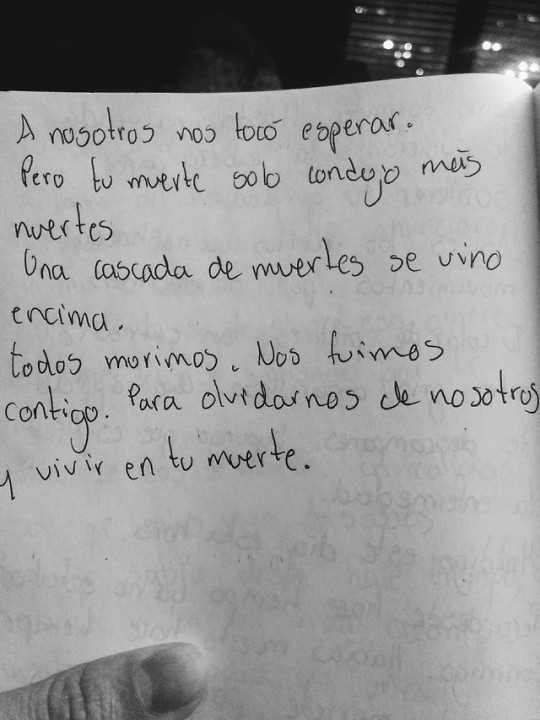 A nosotros nos tocó esperar.
Pero tu muerte solo condujo más
muertes
Una cascada de muertes se vino
encima.
todos morimos. Nos fuimos
contigo. Para olvidarnos de nosotros
y vivir en tu muerte.